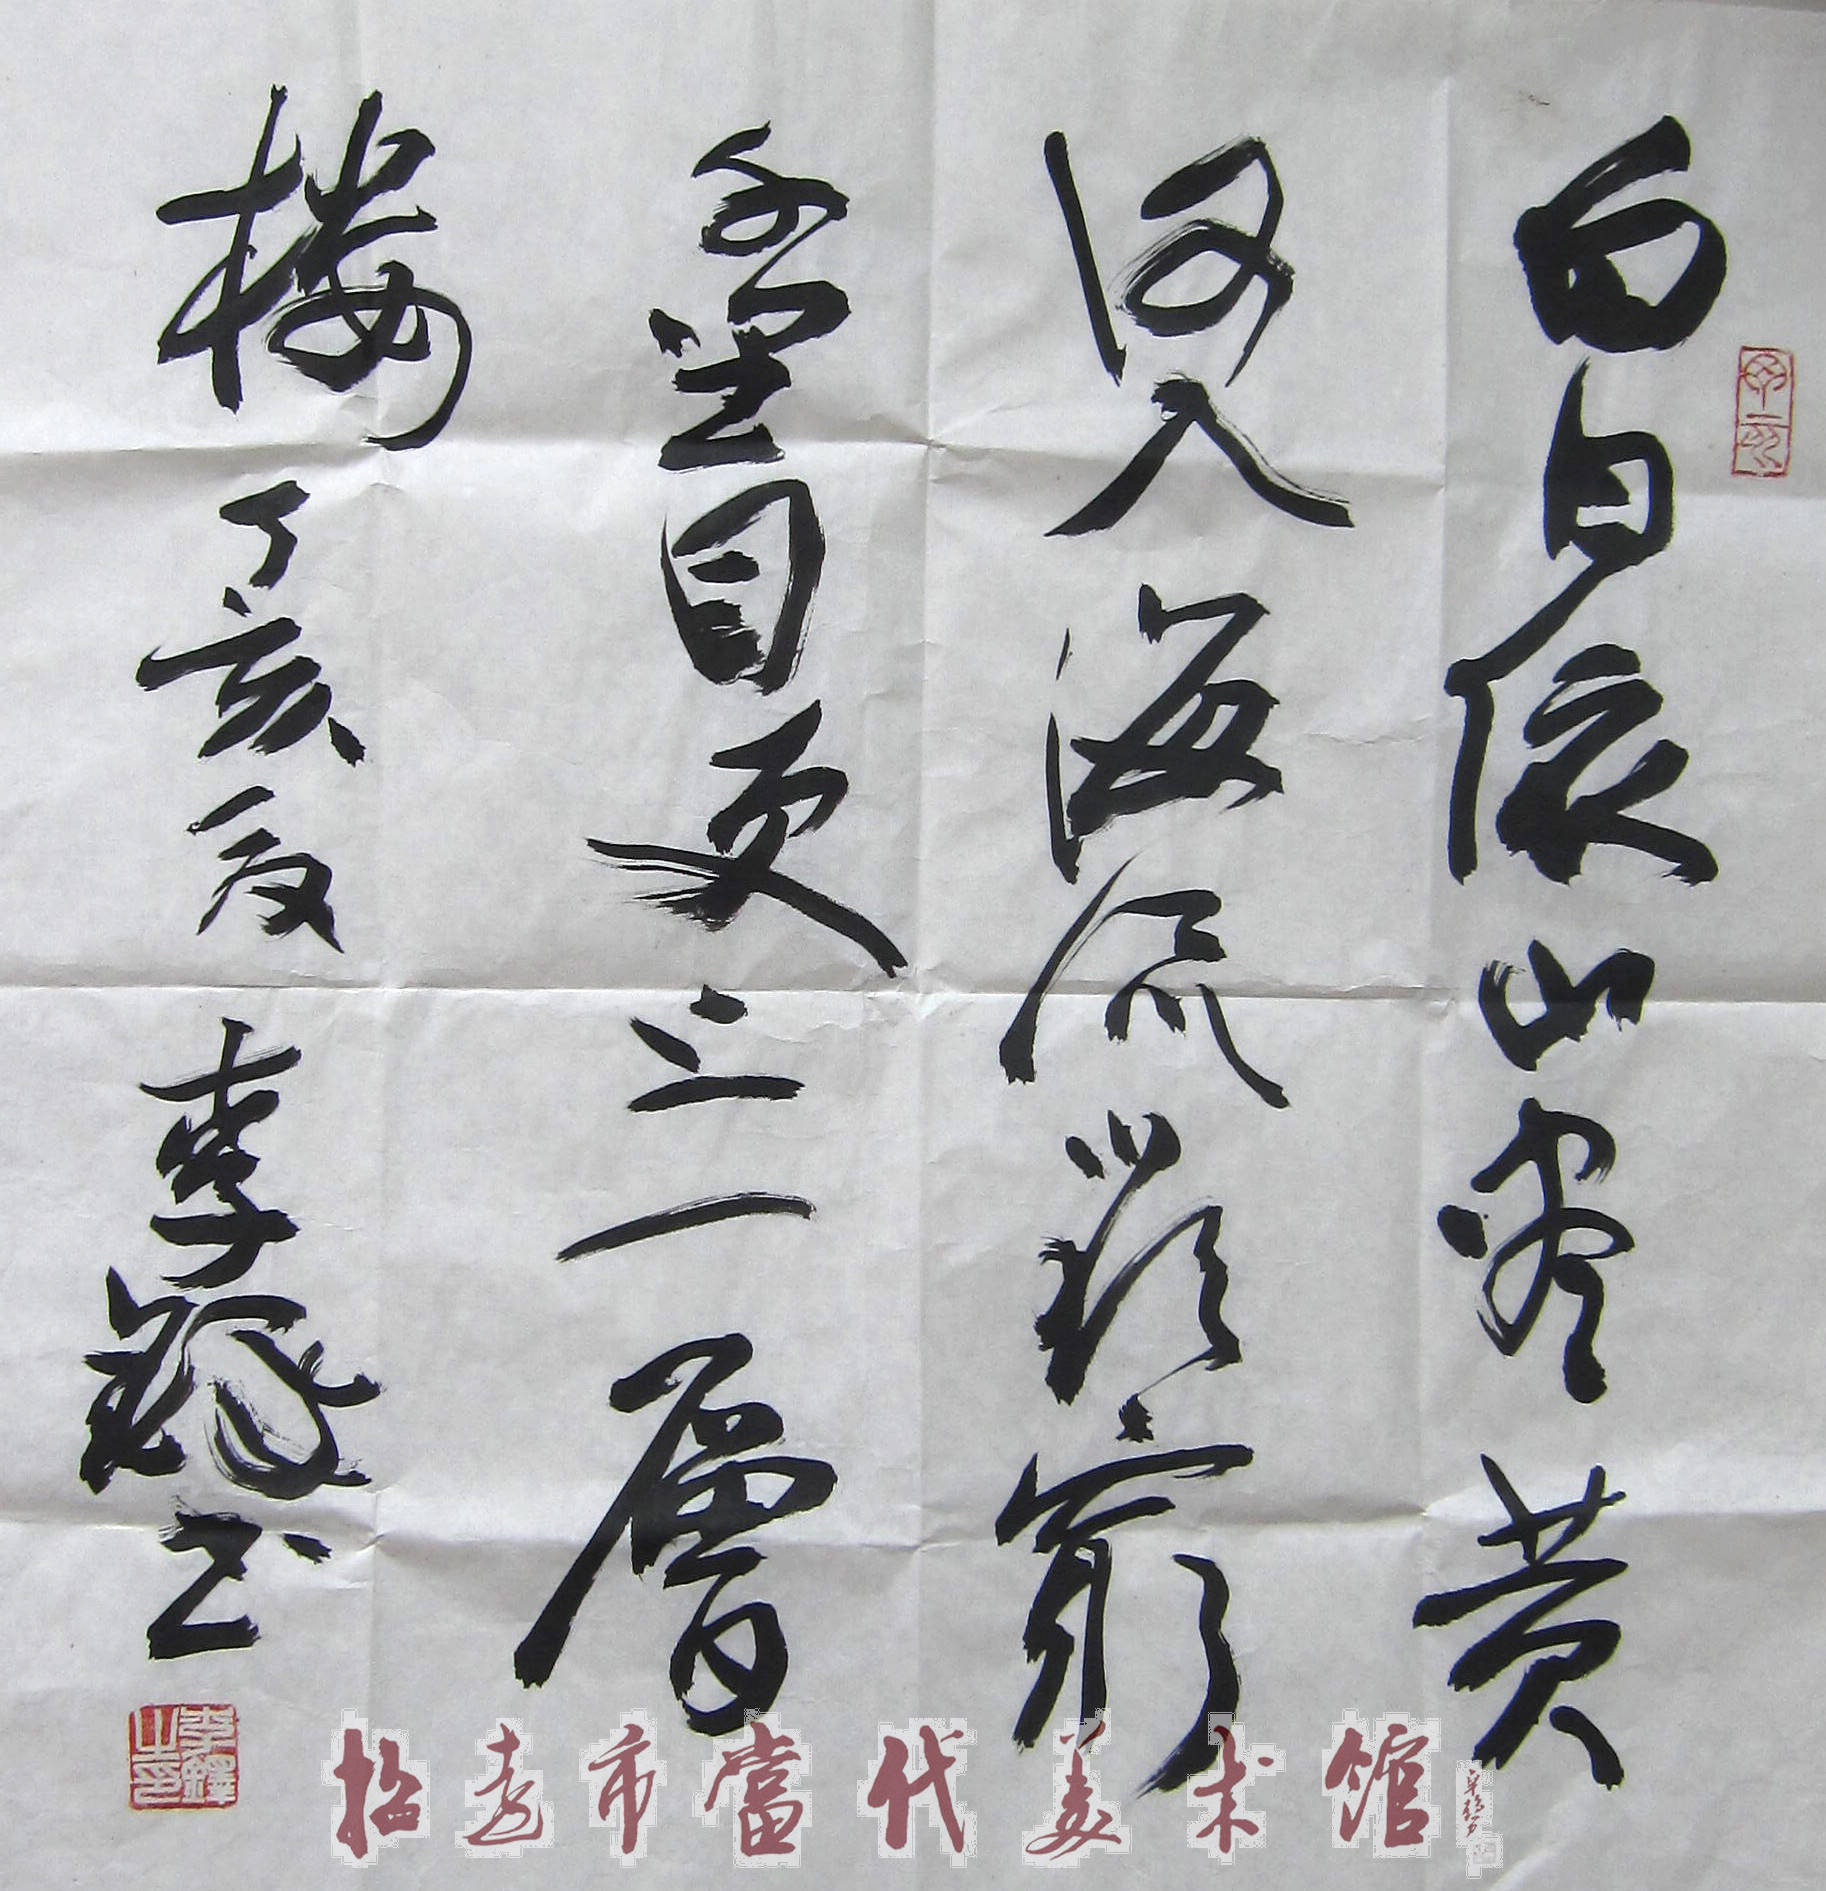 白日依山尽黄
河入海流欲穷
千里目更上一层
楼 丁亥夏 李鐸书
李鐸之印
招远市當代美术馆